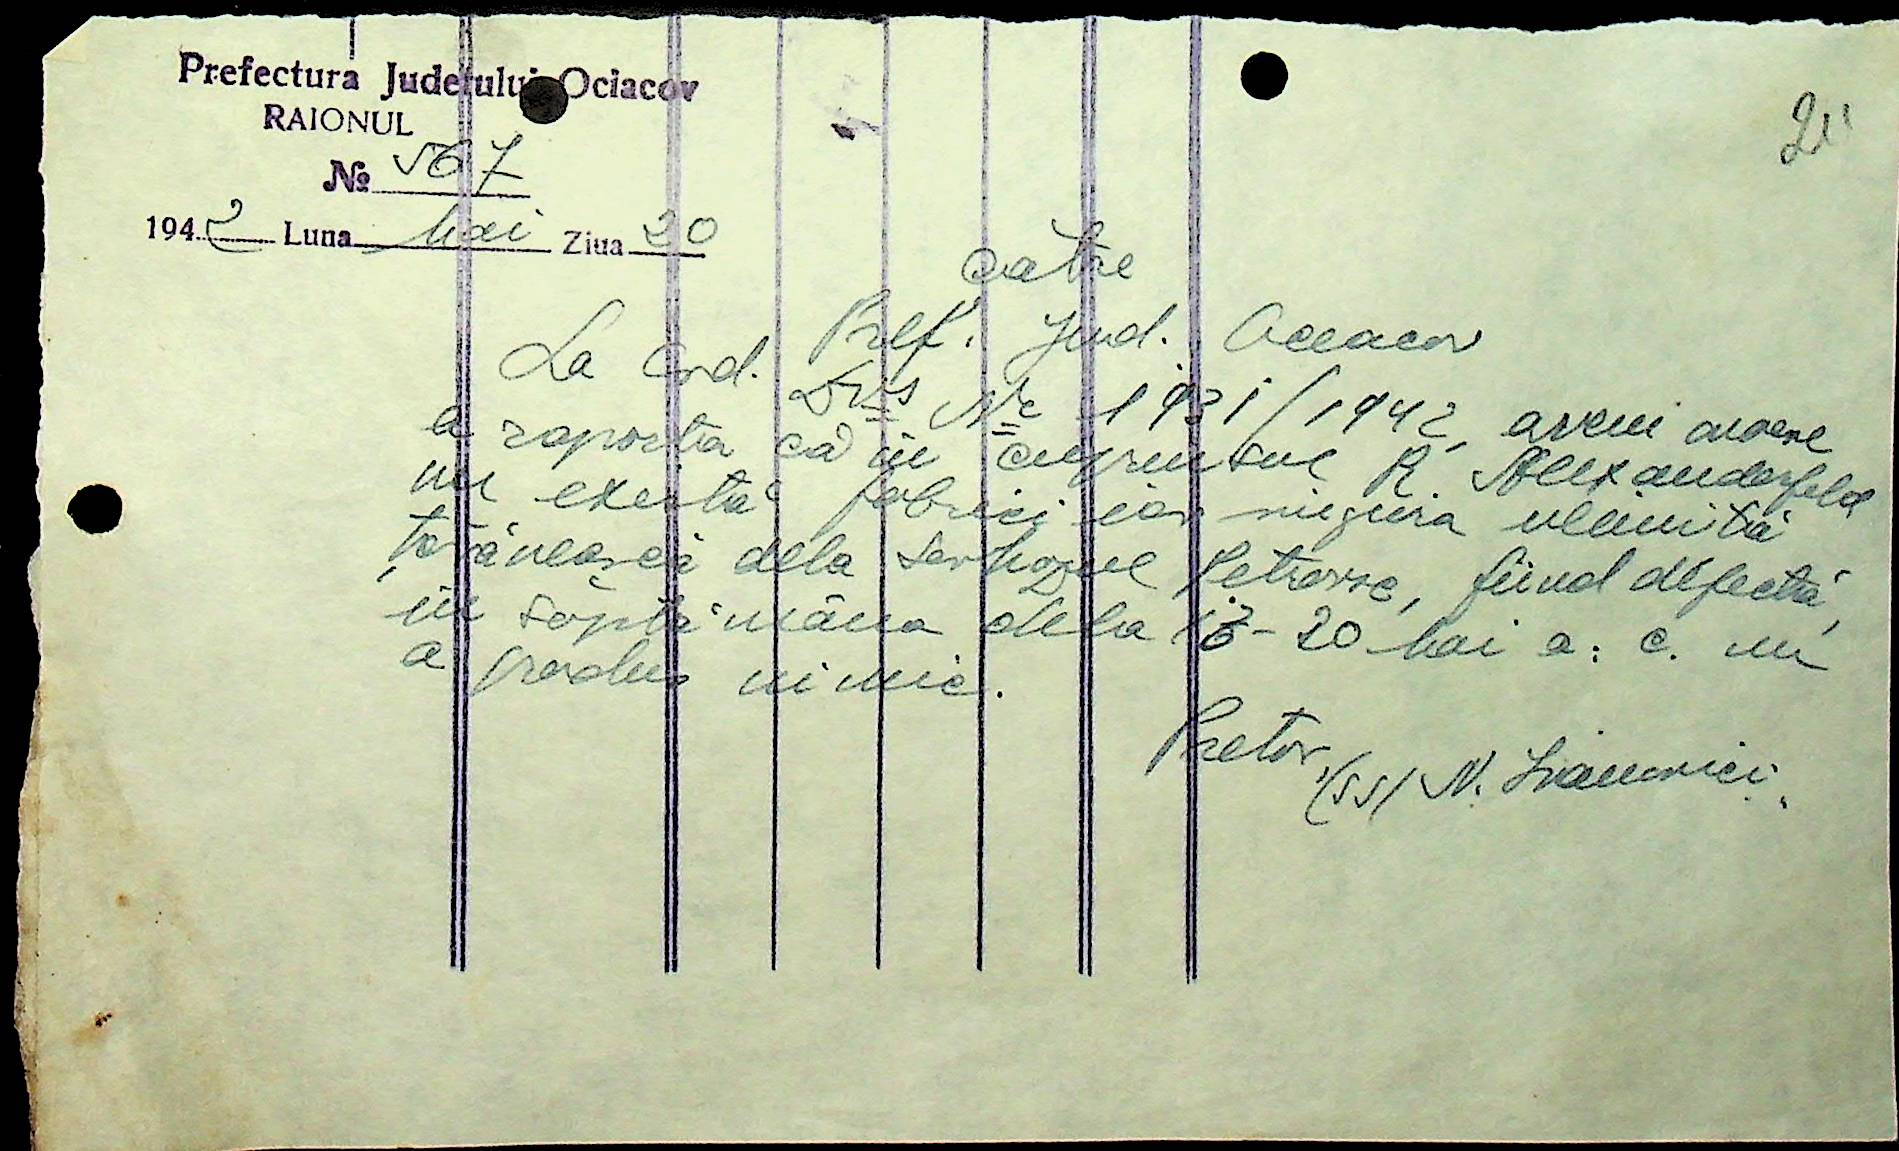 Prefectura Județului Ociacov
RAIONUL
№ 567
1942 Luna Mai Ziua 20
catre
Pref. Jud. Oceacov
La Ord. Dvs Nr 1931/1942, avem onoare
a raporta că în cuprinsul R. Alexanderfeld
nu există fabrici iar singura uleiniță
țărănească dela Serhozul Petrovsc, fiind defectă,
în săptămâna dela 13-20 Mai a. c. nu
a produs nimic.
Pretor,
(ss) N. Ivanovici.